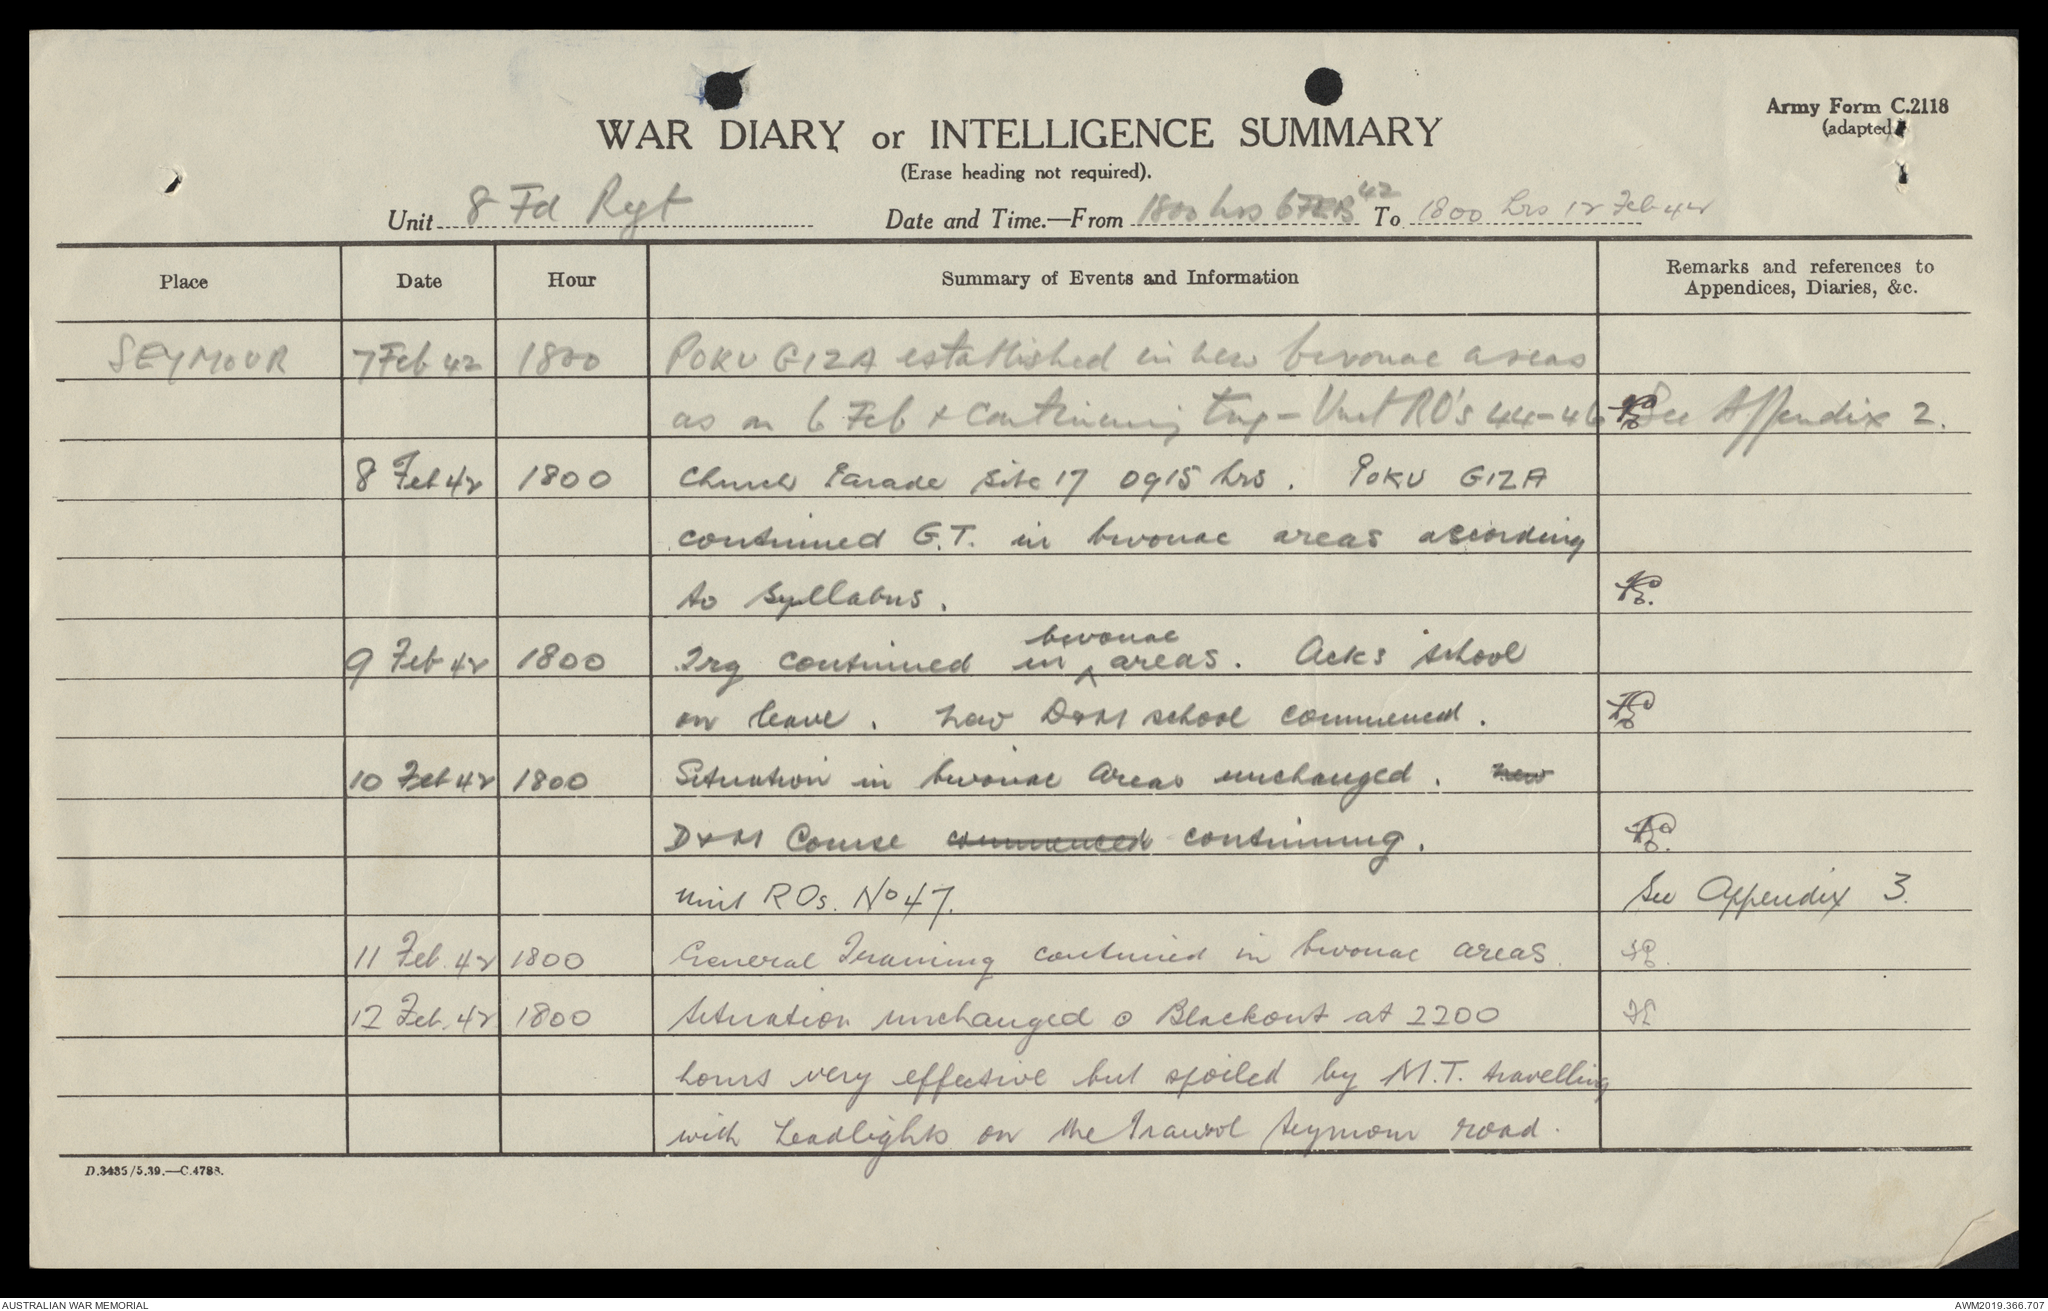 Army Form C.2118
(adapted)
WAR DIARY or INTELLIGENCE SUMMARY
(Erase heading not required).
Unit 8 Fd Regt Date and Time.—From 1800 hrs 6 FEB 42 To 1800 hrs 12 Feb 42
Place Date Hour Summary of Events and Information Remarks and references to Appendices, Diaries, &c.
SEYMOUR 7 Feb 42 1800 POKU GIZA established in new bivouac areas
as on 6 Feb & continuing trg – Unit RO's 44–46 See Appendix 2.
8 Feb 42 1800 Church Parade site 17 0915 hrs. POKU GIZA
continued G.T. in bivouac areas according
to syllabus.
9 Feb 42 1800 Trg continued in bivouac areas. Acks school
on leave. New D+M school commenced.
10 Feb 42 1800 Situation in bivouac areas unchanged. new
D+M Course commenced continuing.
Unit ROs. No 47. See Appendix 3.
11 Feb. 42 1800 General Training continued in bivouac areas.
12 Feb. 42 1800 Situation unchanged o Blackout at 2200
hours very effective but spoiled by M.T. travelling
with headlights on the Trawool Seymour road.
D.3435/5.39.—C.4788.
AUSTRALIAN WAR MEMORIAL AWM2019.366.707